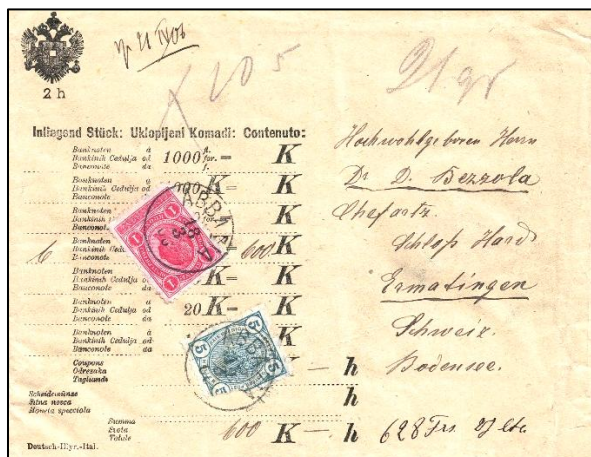 2 h
21 gr
Inliegend Stück: Uklopljeni Komadi: Contenuto:
Banknoten à fl.
Bankinih Cedulja od 1000 for. — K
Banconote da f.
Banknoten à
Bankinih Cedulja od K — K
Banconote da
Banknoten
Bankinih K
Banconote
Banknoten
6 Bankinih Cedulja 600 K
Banconote
Banknoten
Bankinih Cedulja K — K
Banconote
Banknoten à
Bankinih Cedulja od 20 K — K
Banconote da
Banknoten à
Bankinih Cedulja od K
Banconote da
Coupons
Odrezaka K — h
Tagliandi
Scheidemünze
Sitna novca h
Moneta specciola
Summa
Svota 600 K — h
Totale
Deutsch-Illyr.-Ital.
1
1
ABBAZIA
5
5
ABBAZIA
Hochwohlgeboren Herrn
Dr D. Bezzola
Chefarzt
Schloß Hard
Ermatingen
Schweiz.
Bodensee.
628 Frs